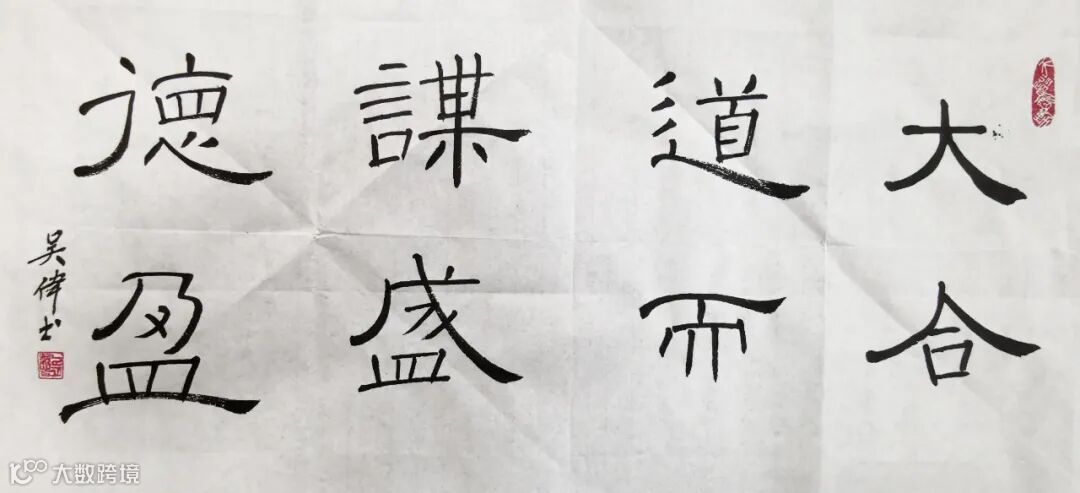 大合
道而
謀盛
徳盈
吴偉书
大数跨境